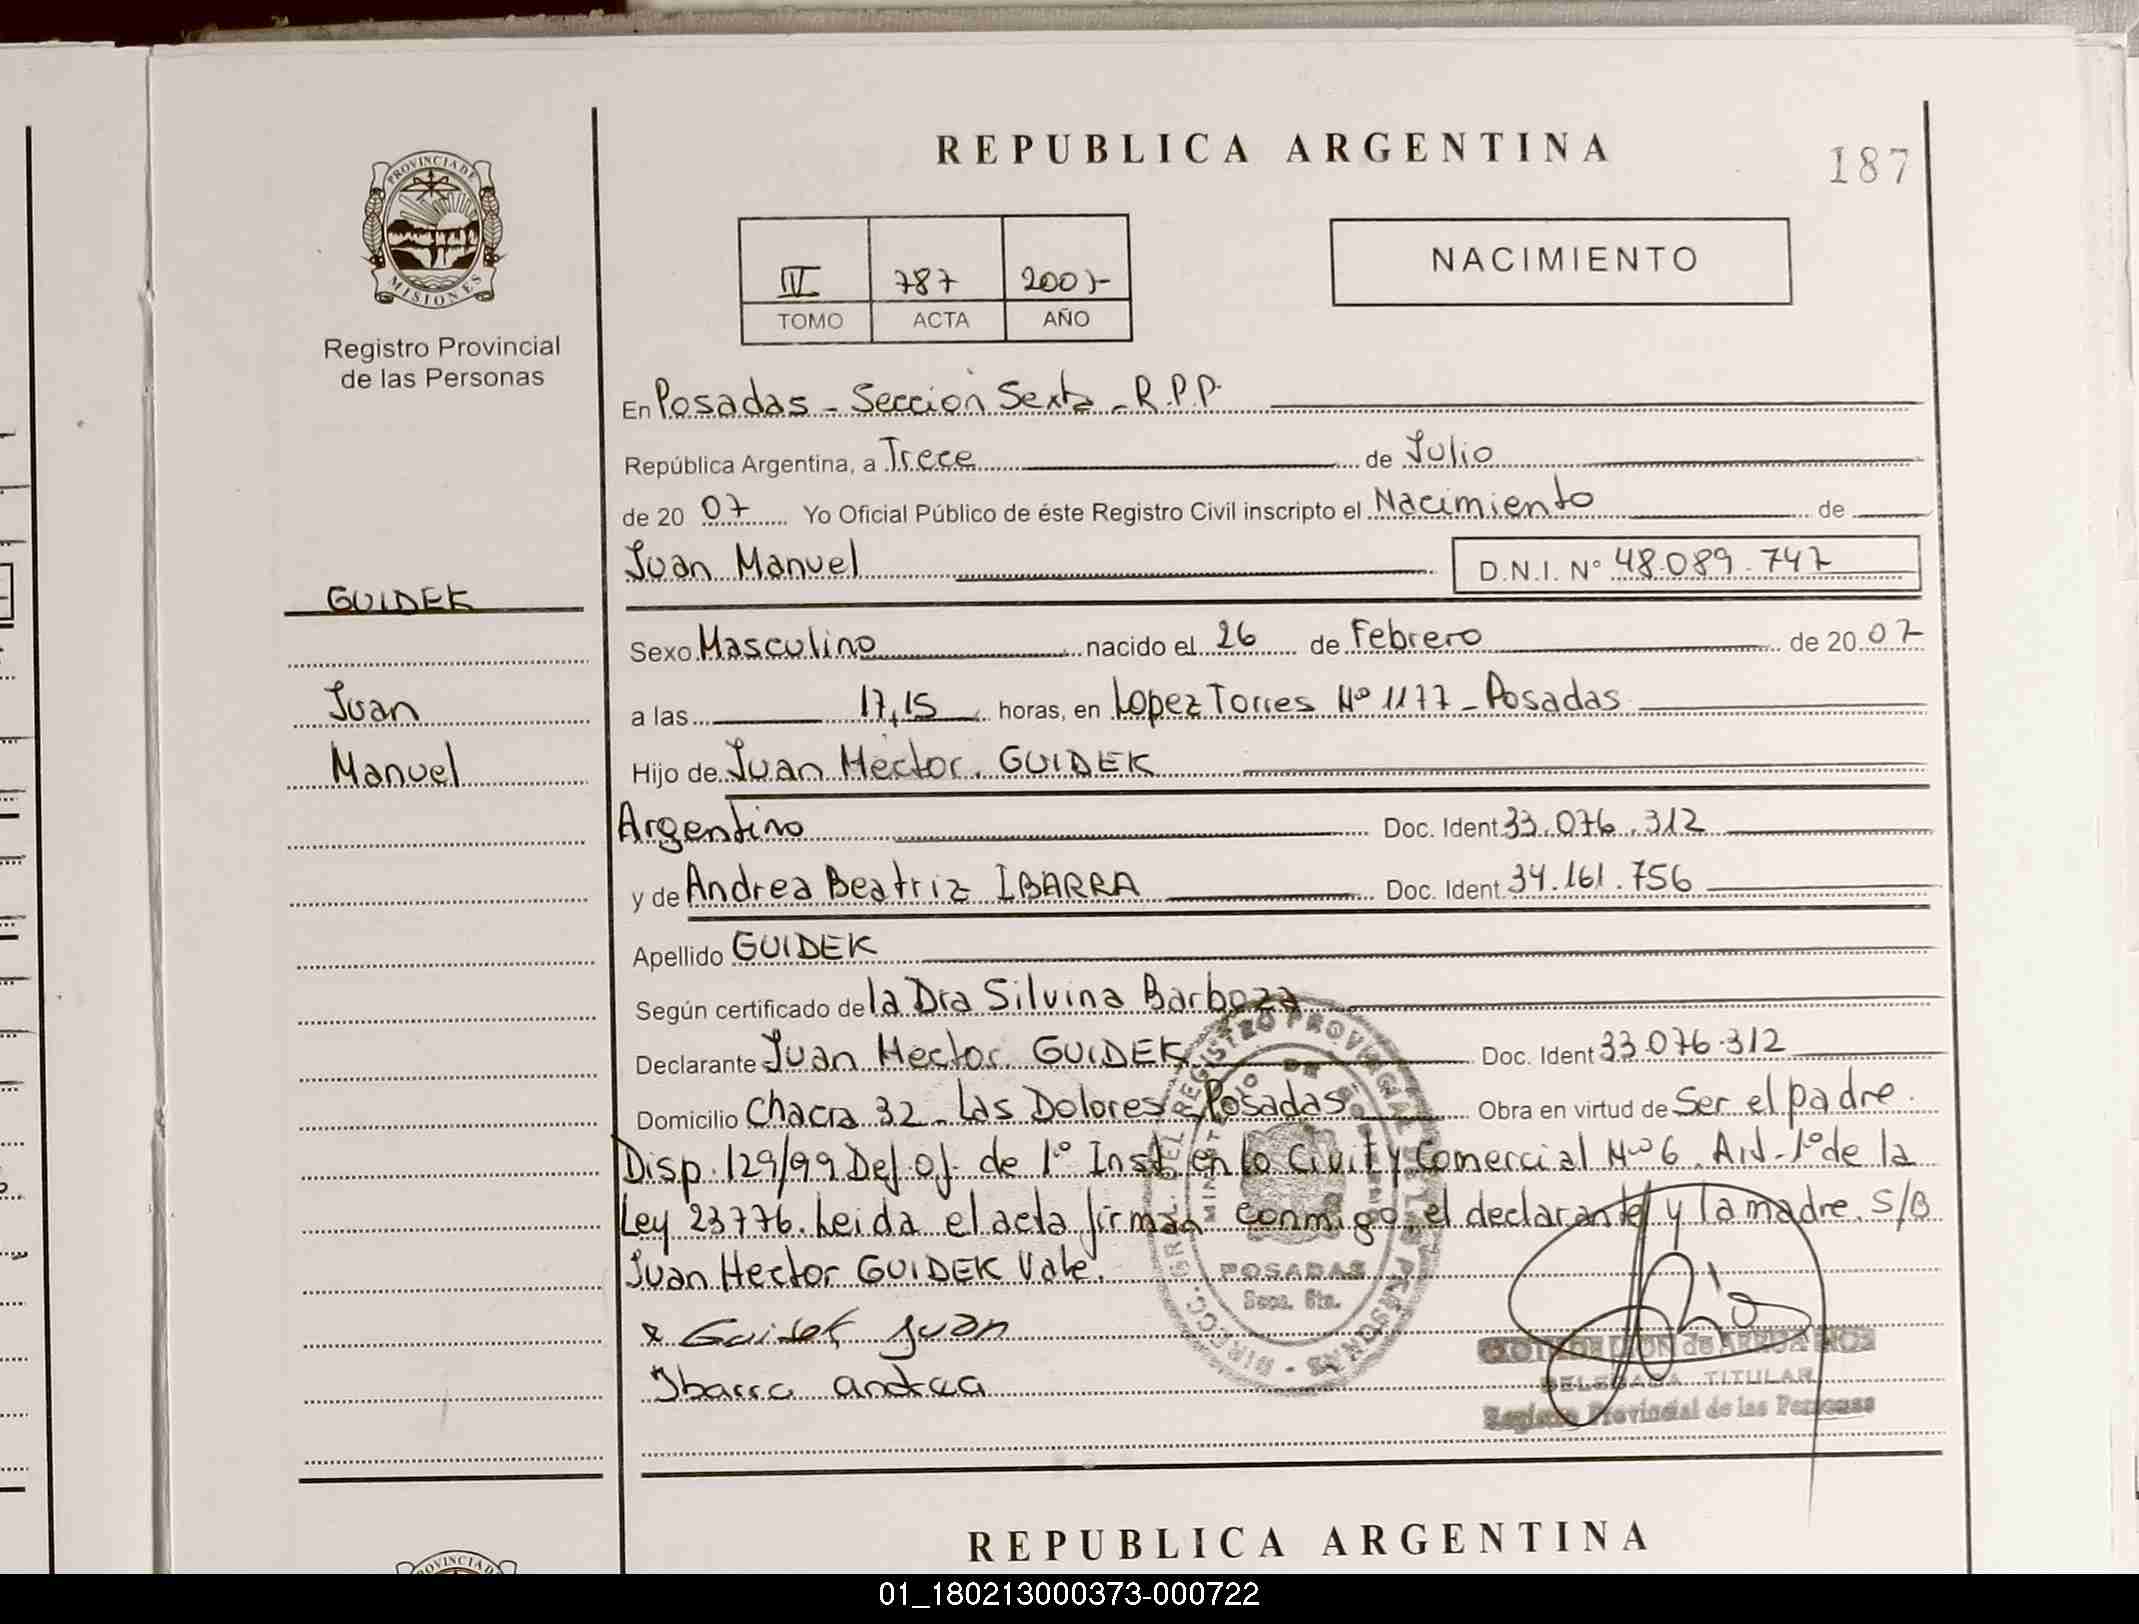 REPUBLICA ARGENTINA
187
PROVINCIA DE
MISIONES
Registro Provincial
de las Personas
IV 787 2007-
TOMO ACTA AÑO
NACIMIENTO
En Posadas - Sección Sexta - R.P.P.
República Argentina, a Trece de Julio
de 2007 Yo Oficial Público de éste Registro Civil inscripto el Nacimiento de
Juan Manuel D.N.I. N° 48.089.747
GUIDEK
Sexo Masculino nacido el 26 de Febrero de 2007
Juan
a las 17,15 horas, en Lopez Torres Nº 1177 - Posadas
Manuel
Hijo de Juan Hector GUIDEK
Argentino Doc. Ident. 33.076.312
y de Andrea Beatriz IBARRA Doc. Ident. 34.161.756
Apellido GUIDEK
Según certificado de la Dra Silvina Barboza
Declarante Juan Hector GUIDEK Doc. Ident 33.076.312
Domicilio Chacra 32 - Las Dolores, Posadas Obra en virtud de Ser el padre.
Disp. 129/99 Def. of. de 1º Inst. en lo Civil y Comercial Nº 6. Art. 1º de la
Ley 23776. Leida el acta firman conmigo, el declarante y la madre. S/B
Juan Hector GUIDEK Vale.
x Guidek Juan
Ibarra andrea
POSADAS
Secc. 6ta.
DELEGADA TITULAR
Registro Provincial de las Personas
REPUBLICA ARGENTINA
01_180213000373-000722